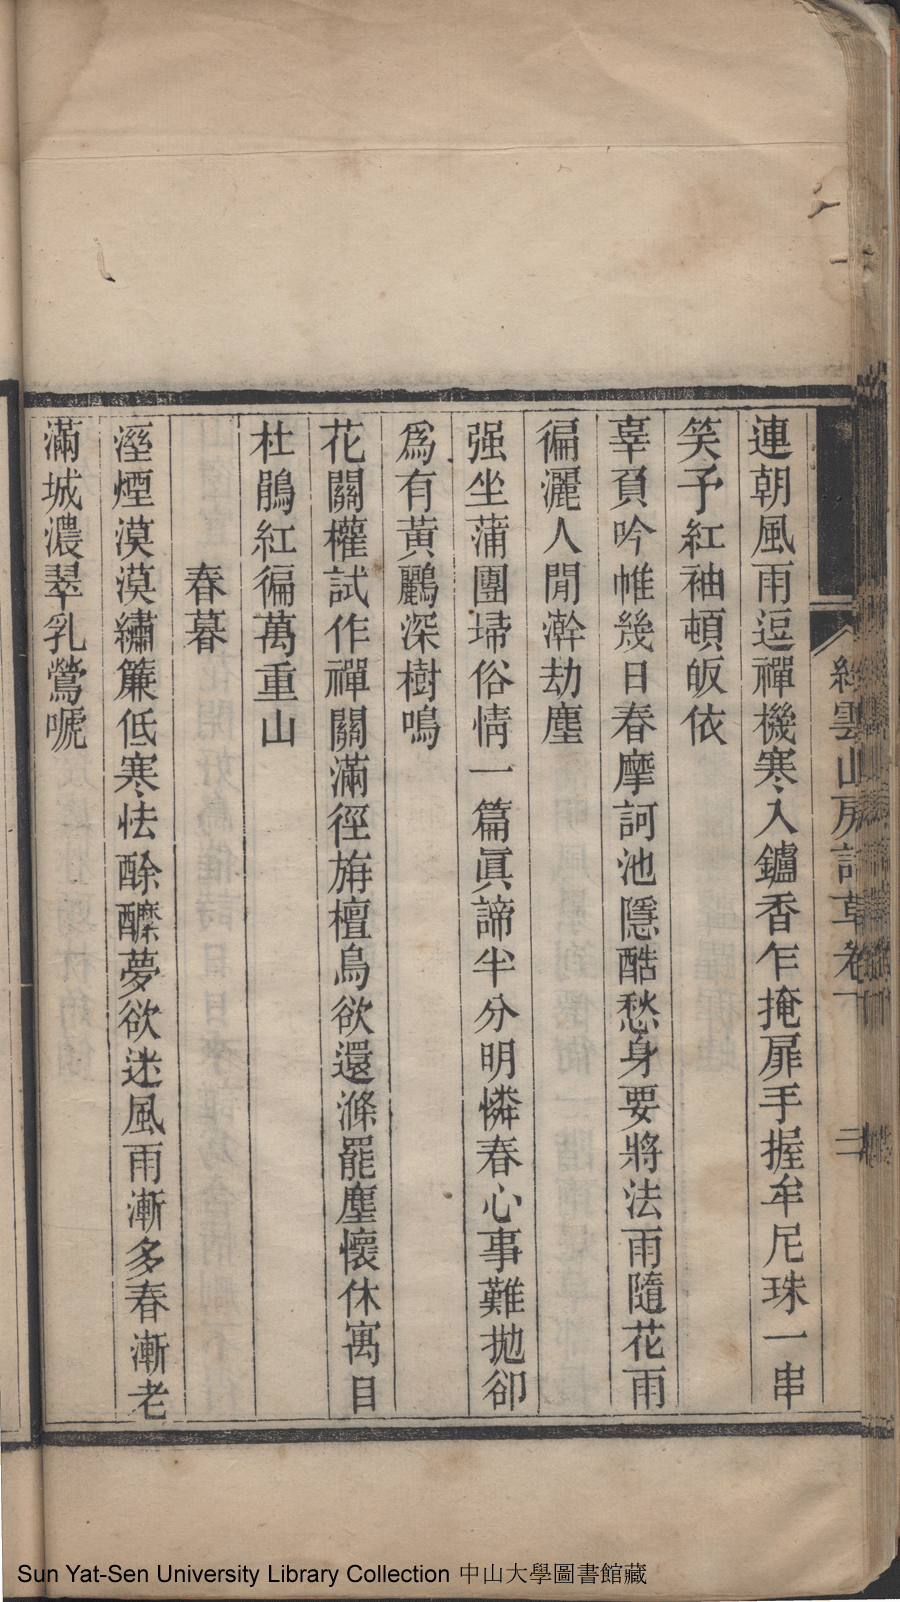 連朝風雨逗禪機寒入鑪香乍掩扉手握牟尼珠一串
笑予紅袖頓皈依
辜負吟帷幾日春摩訶池隱酷愁身要將法雨隨花雨
徧灑人閒澣劫塵
强坐蒲團埽俗情一篇眞諦半分明憐春心事難拋卻
爲有黃鸝深樹鳴
花關權試作禪關滿徑旃檀鳥欲還滌罷塵懷休寓目
杜鵑紅徧萬重山
春暮
溼煙漠漠繡簾低寒怯酴醾夢欲迷風雨漸多春漸老
滿城濃翠乳鶯嗁
雲山房詩草卷
二
Sun Yat-Sen University Library Collection 中山大學圖書館藏